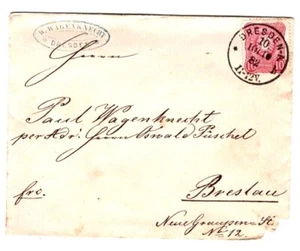 W. WAGENKNECHT
DRESDEN
DRESDEN
10
82
Herrn
Paul Wagenknecht
per Adr: Herrn Oswald Püschel
frc.
Breslau
Neue Graupen St.
No 12